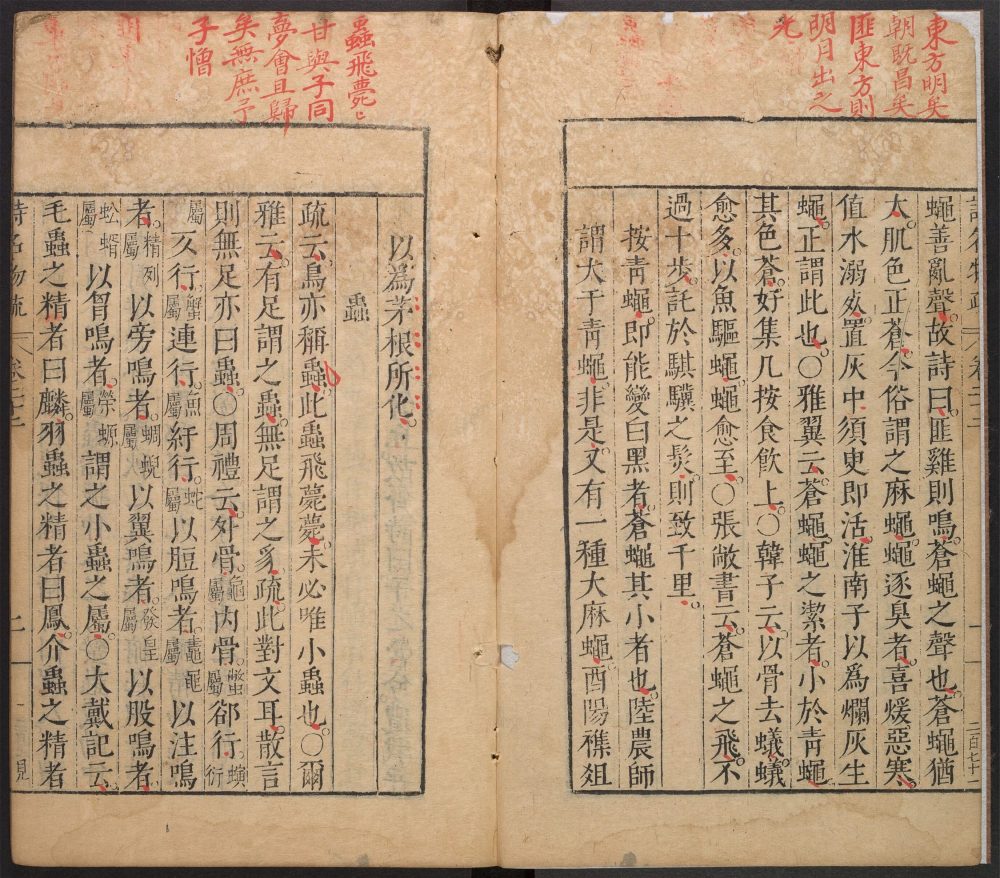 東方明矣
朝既昌矣
匪東方則
明月出之
光
蠅善亂聲故詩曰匪雞則鳴蒼蠅之聲也蒼蠅猶
大肌色正蒼今俗謂之麻蠅蠅逐臭者喜煖惡寒
值水溺效置灰中須臾即活淮南子以爲爛灰生
蠅正謂此也○雅翼云蒼蠅蠅之潔者小於青蠅
其色蒼好集几按食飲上○韓子云以骨去蟻蟻
愈多以魚驅蠅蠅愈至○張敞書云蒼蠅之飛不
過十步託於騏驥之髮則致千里
按青蠅即能變白黑者蒼蠅其小者也陸農師
謂大于青蠅非是又有一種大麻蠅酉陽襍俎
蟲飛薨〻
甘與子同
夢會且歸
矣無庶予
子憎
以為茅根所化
蟲
疏云鳥亦稱蟲此蟲飛薨薨未必唯小蟲也○爾
雅云有足謂之蟲無足謂之豸疏此對文耳散言
則無足亦曰蟲○周禮云外骨龜屬内骨蟞屬郤行螾衍
屬仄行蟹屬連行魚屬紆行蛇屬以脰鳴者鼃黽屬以注鳴
者精列屬以旁鳴者蜩蜺屬以翼鳴者發皇屬以股鳴者
蚣蝑屬以胷鳴者榮螈屬謂之小蟲之屬○大戴記云
毛蟲之精者曰麟羽蟲之精者曰鳳介蟲之精者
詩名物疏 卷二十三